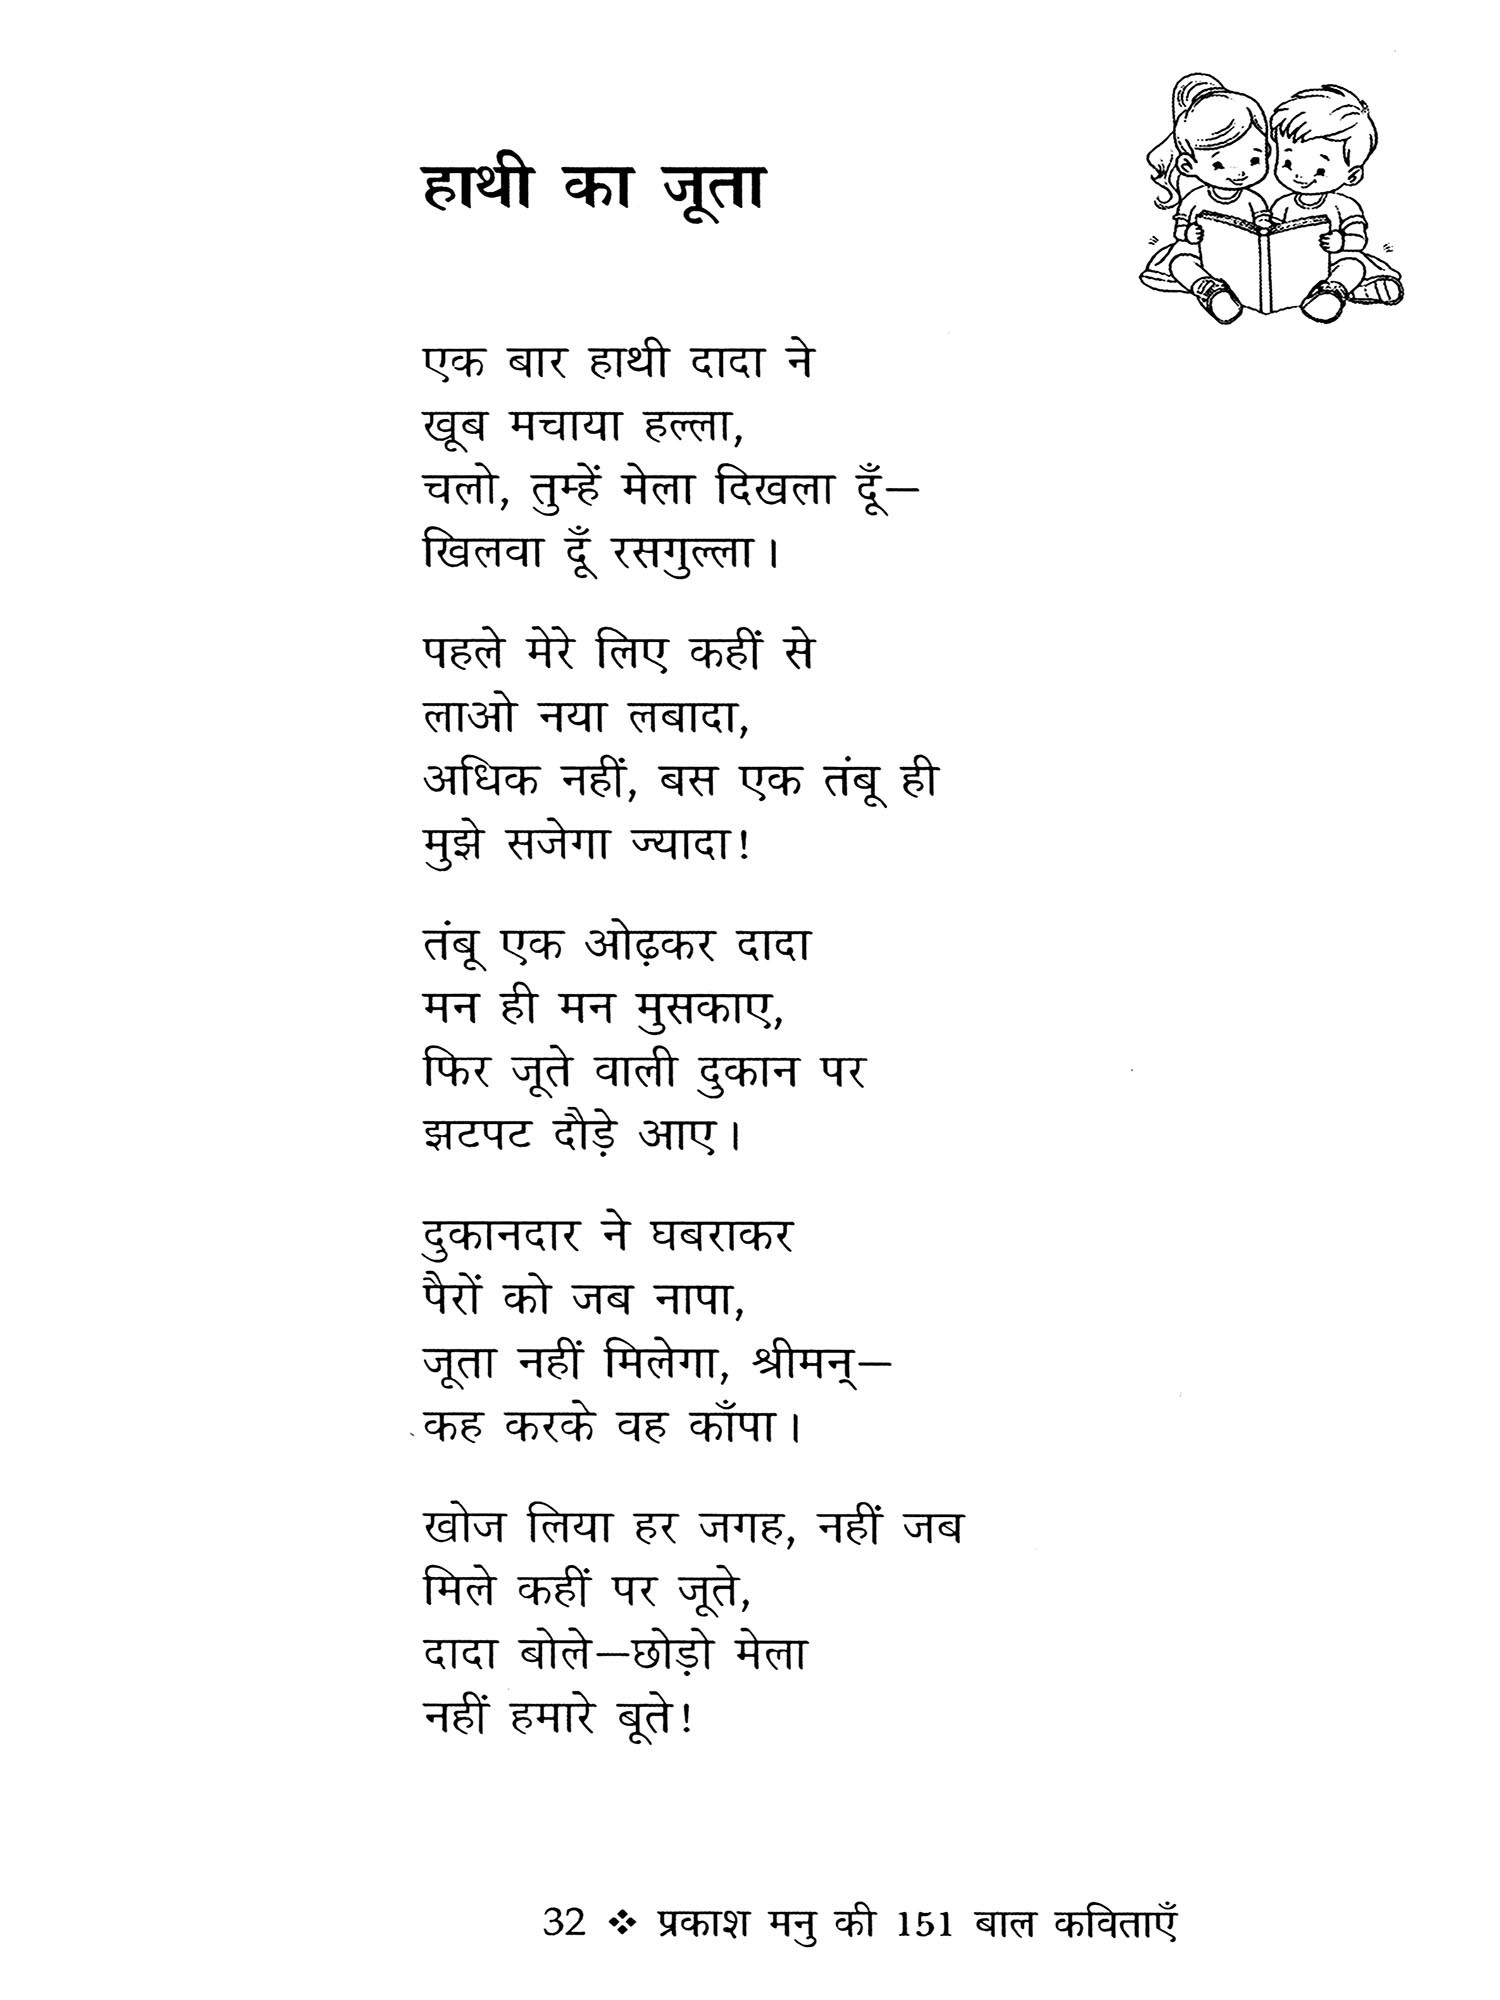 हाथी का जूता
एक बार हाथी दादा ने
खूब मचाया हल्ला,
चलो, तुम्हें मेला दिखला दूँ—
खिलवा दूँ रसगुल्ला।
पहले मेरे लिए कहीं से
लाओ नया लबादा,
अधिक नहीं, बस एक तंबू ही
मुझे सजेगा ज्यादा!
तंबू एक ओढ़कर दादा
मन ही मन मुसकाए,
फिर जूते वाली दुकान पर
झटपट दौड़े आए।
दुकानदार ने घबराकर
पैरों को जब नापा,
जूता नहीं मिलेगा, श्रीमन्—
कह करके वह काँपा।
खोज लिया हर जगह, नहीं जब
मिले कहीं पर जूते,
दादा बोले—छोड़ो मेला
नहीं हमारे बूते!
32 ❖ प्रकाश मनु की 151 बाल कविताएँ